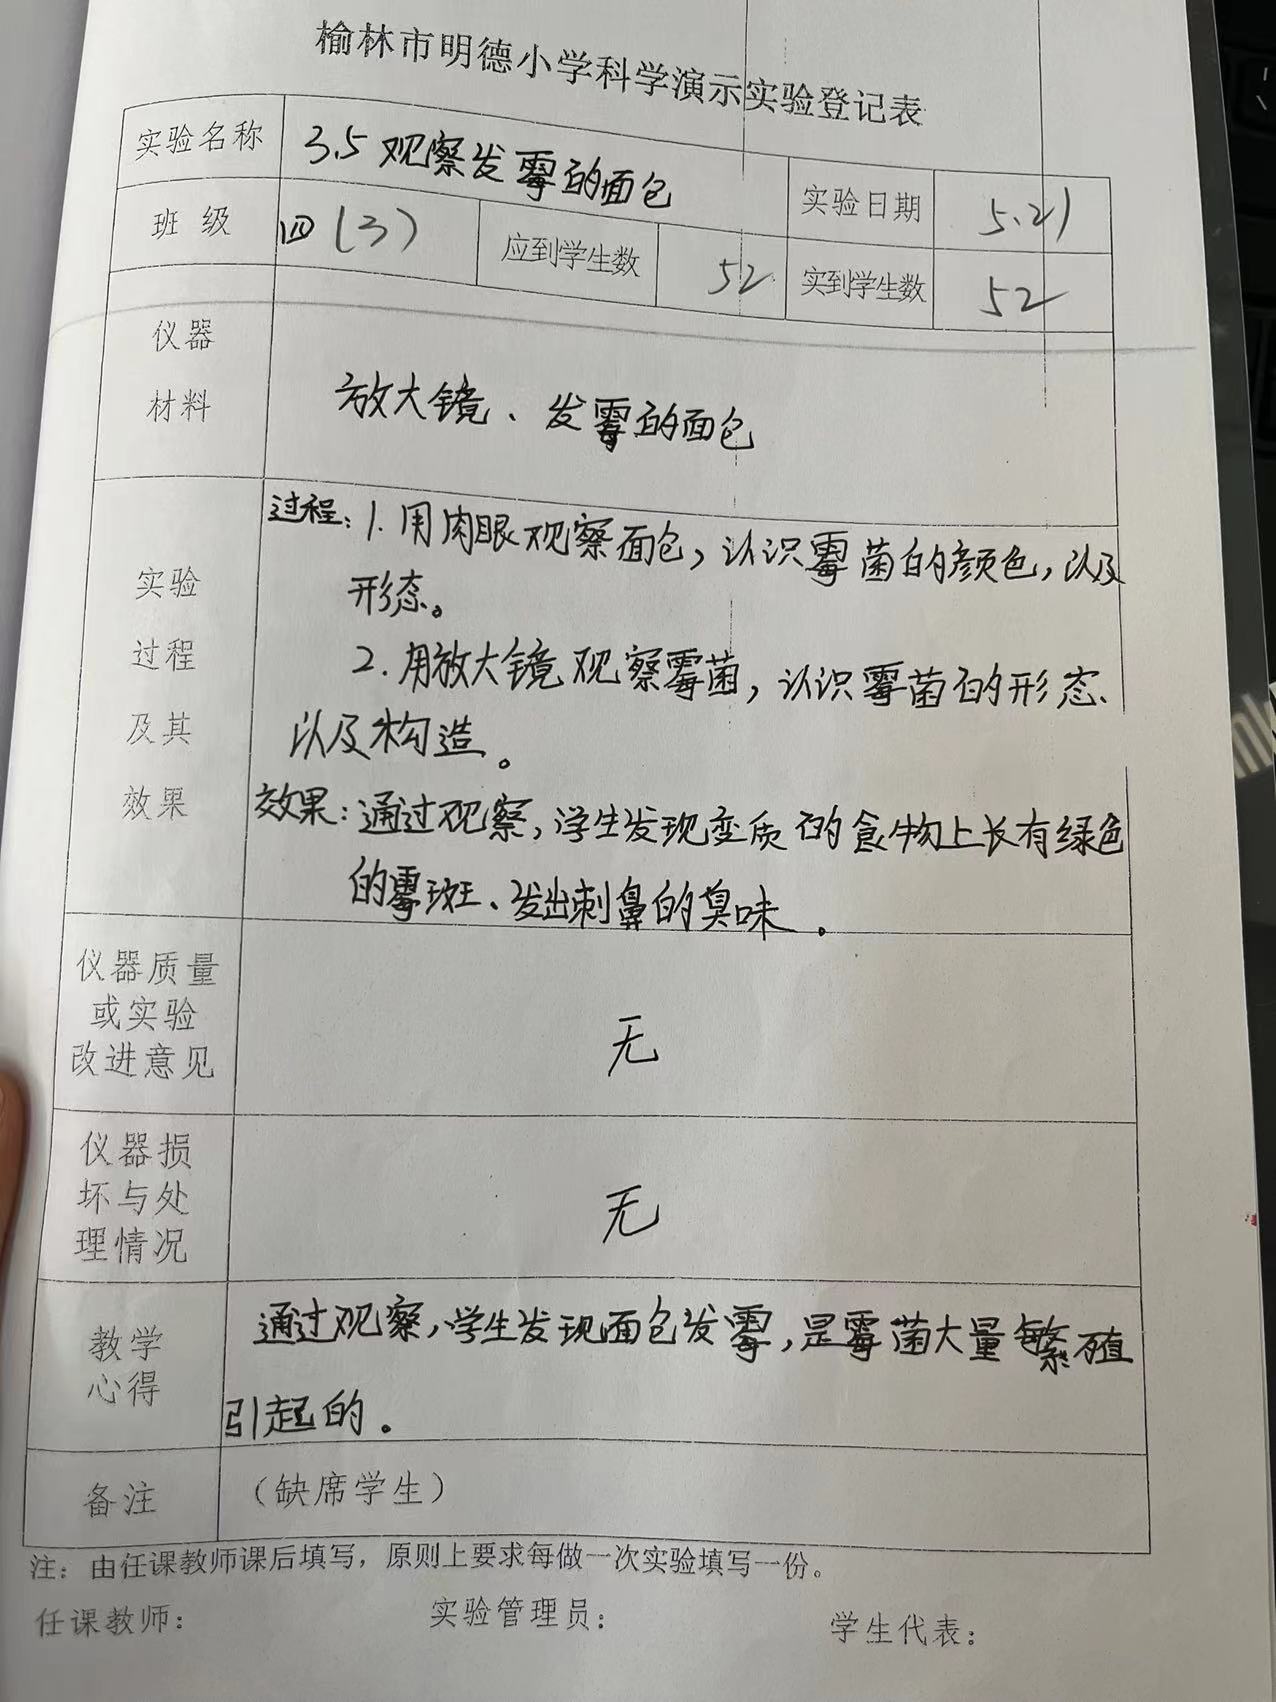 榆林市明德小学科学演示实验登记表
实验名称 3.5 观察发霉的面包 实验日期 5.21
班 级 四(3) 应到学生数 52 实到学生数 52
仪器
材料
放大镜、发霉的面包
实验
过程
及其
效果
过程:1.用肉眼观察面包,认识霉菌的颜色,以及
形态。
2.用放大镜观察霉菌,认识霉菌的形态、
以及构造。
效果:通过观察,学生发现变质的食物上长有绿色
的霉斑、发出刺鼻的臭味。
仪器质量
或实验
改进意见
无
仪器损
坏与处
理情况
无
教学
心得
通过观察,学生发现面包发霉,是霉菌大量繁殖
引起的。
备注 (缺席学生)
注:由任课教师课后填写,原则上要求每做一次实验填写一份。
任课教师: 实验管理员: 学生代表: